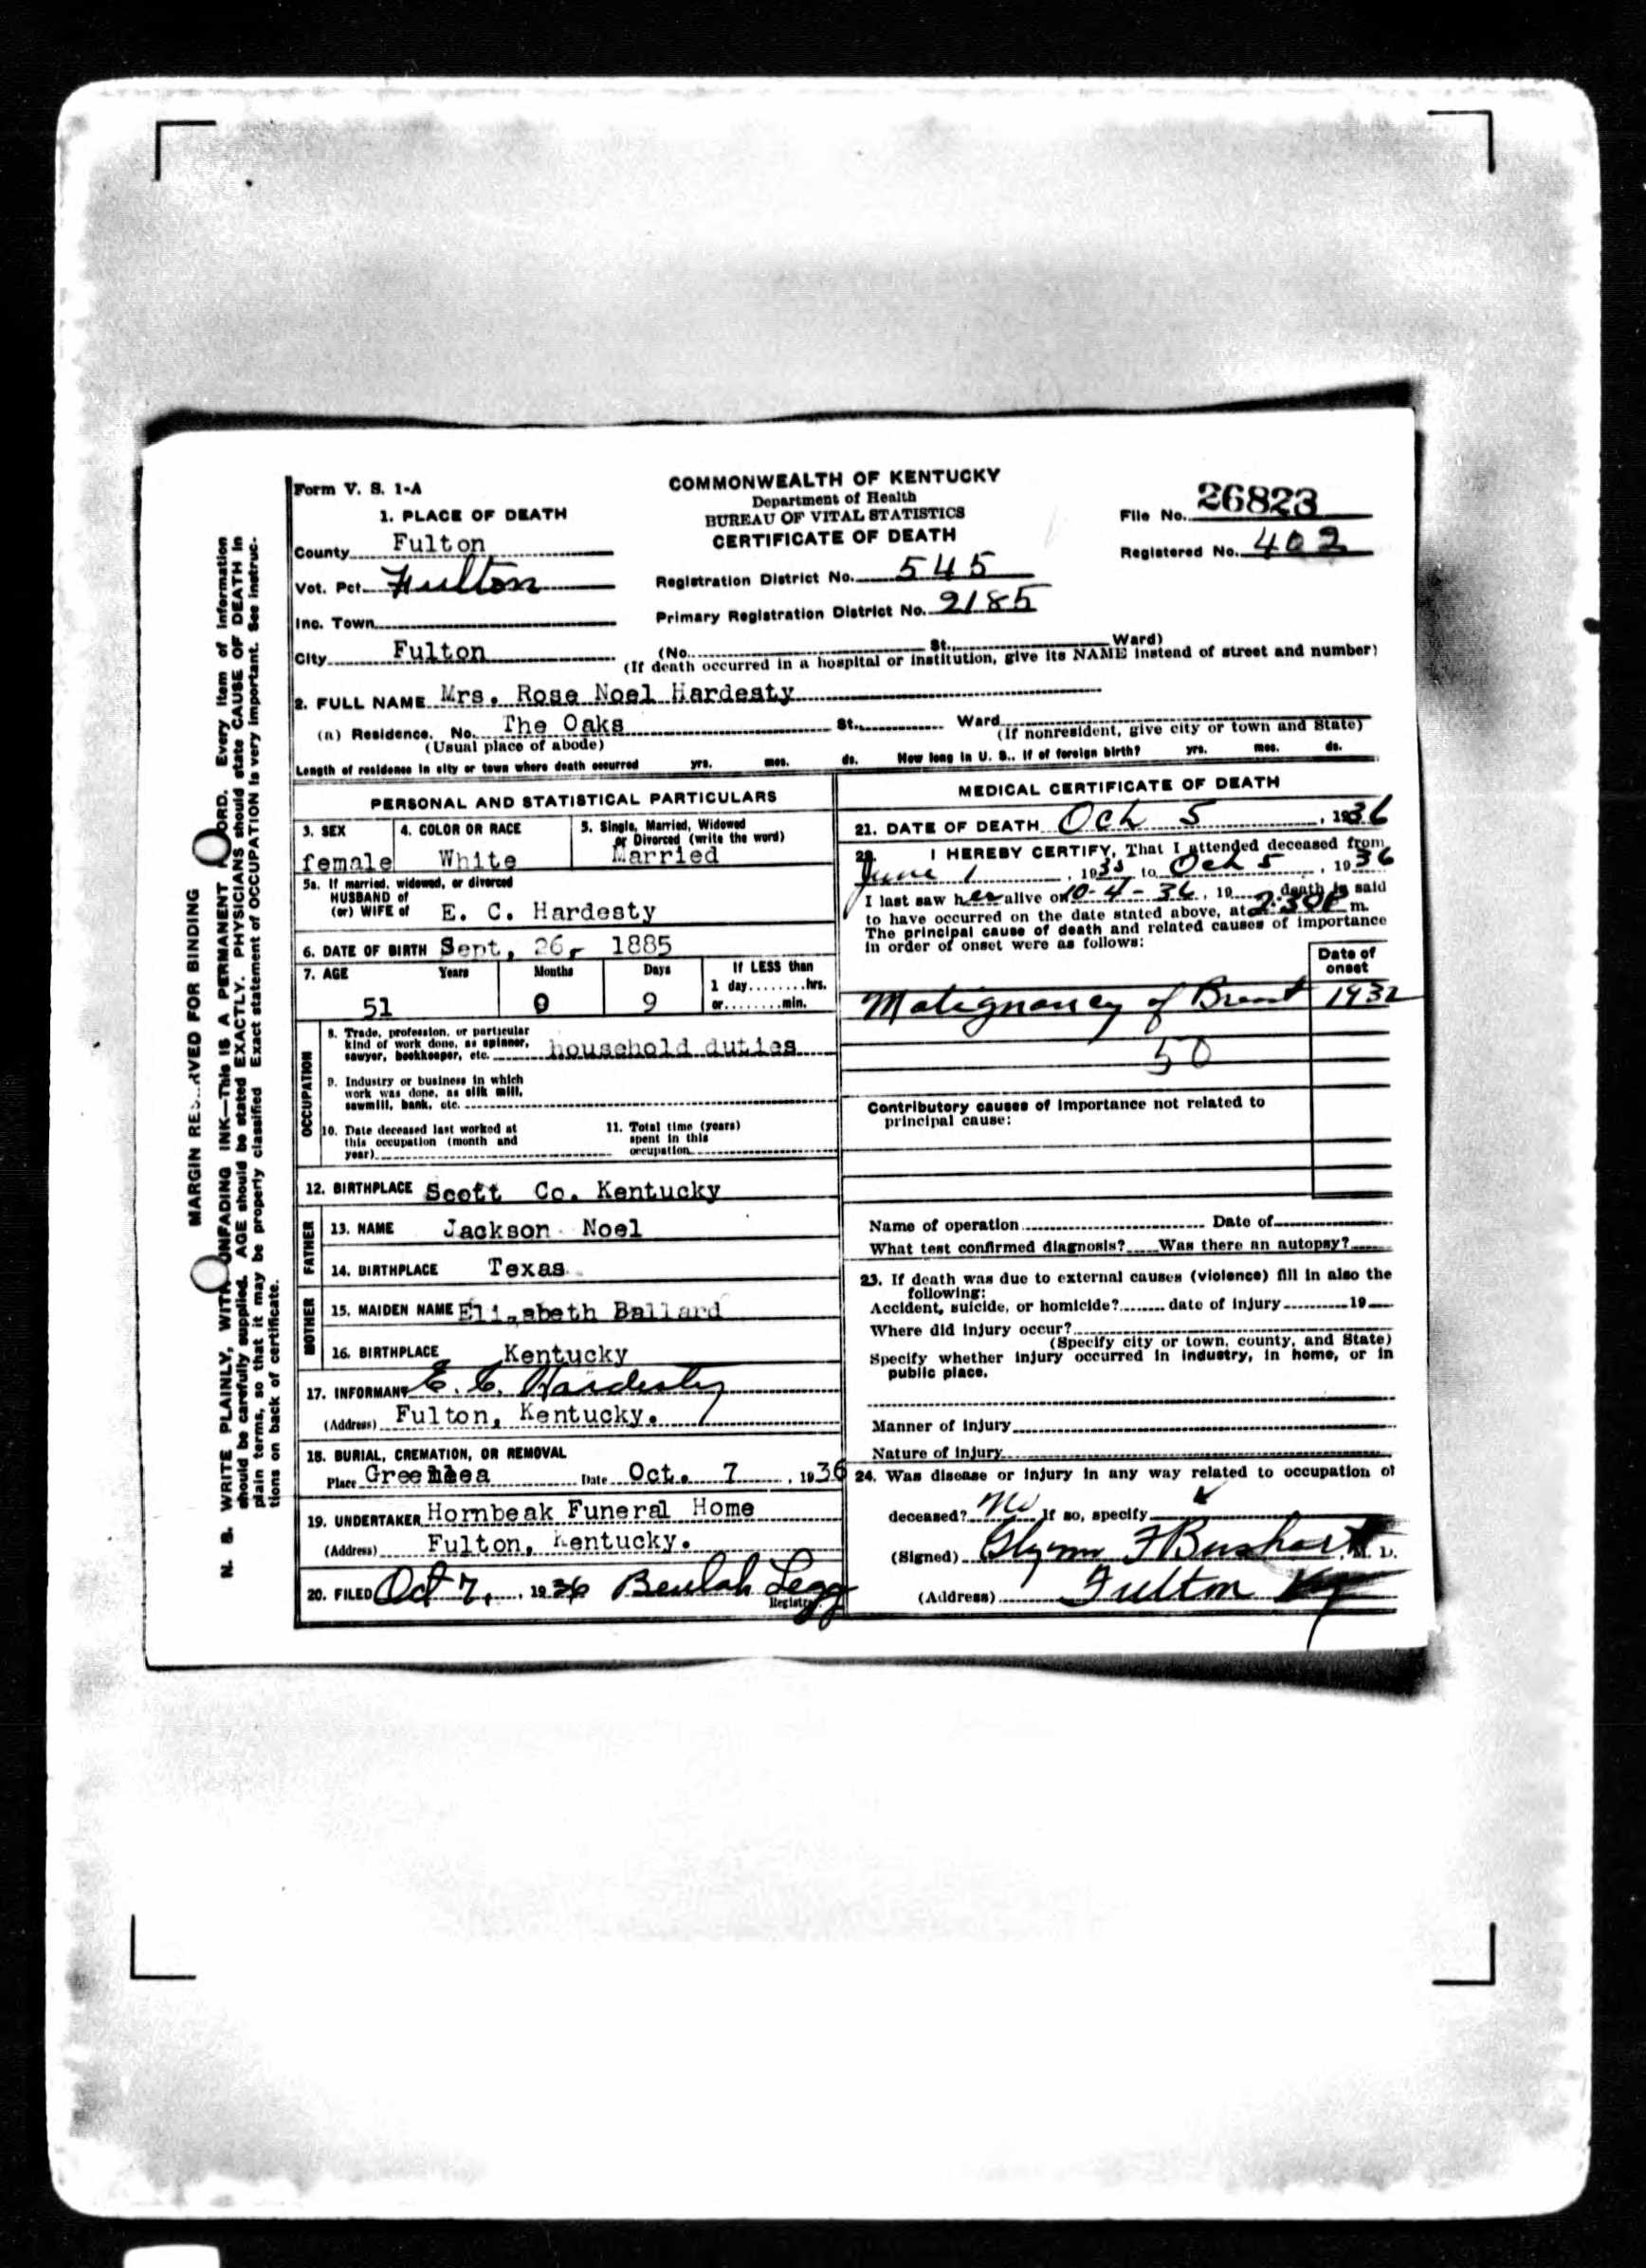 Form V. S. 1-A
COMMONWEALTH OF KENTUCKY
Department of Health
BUREAU OF VITAL STATISTICS
CERTIFICATE OF DEATH
File No. 26823
Registered No. 402
1. PLACE OF DEATH
County Fulton
Vot. Pct. Fulton
Inc. Town
City Fulton
Registration District No. 545
Primary Registration District No. 2185
(No. St. Ward)
(If death occurred in a hospital or institution, give its NAME instead of street and number)
2. FULL NAME Mrs. Rose Noel Hardesty
(a) Residence. No. The Oaks St. Ward
(Usual place of abode) (If nonresident, give city or town and State)
Length of residence in city or town where death occurred yrs. mos. ds. How long in U. S., if of foreign birth? yrs. mos. ds.
PERSONAL AND STATISTICAL PARTICULARS
3. SEX
female
4. COLOR OR RACE
White
5. Single, Married, Widowed
or Divorced (write the word)
Married
5a. If married, widowed, or divorced
HUSBAND of
(or) WIFE of E. C. Hardesty
6. DATE OF BIRTH Sept. 26, 1885
7. AGE Years Months Days If LESS than
1 day hrs.
51 0 9 or min.
OCCUPATION
8. Trade, profession, or particular
kind of work done, as spinner,
sawyer, bookkeeper, etc. household duties
9. Industry or business in which
work was done, as silk mill,
sawmill, bank, etc.
10. Date deceased last worked at
this occupation (month and
year)
11. Total time (years)
spent in this
occupation
12. BIRTHPLACE Scott Co. Kentucky
FATHER
13. NAME Jackson Noel
14. BIRTHPLACE Texas
MOTHER
15. MAIDEN NAME Elizabeth Ballard
16. BIRTHPLACE Kentucky
17. INFORMANT E. C. Hardesty
(Address) Fulton, Kentucky.
18. BURIAL, CREMATION, OR REMOVAL
Place Date Oct. 7, 1936
19. UNDERTAKER Hornbeak Funeral Home
(Address) Fulton, Kentucky.
20. FILED Oct 7, 1936 Beulah Legg
Registrar
MEDICAL CERTIFICATE OF DEATH
21. DATE OF DEATH Oct 5, 1936
22. I HEREBY CERTIFY, That I attended deceased from
June 1, 19 to Oct 5, 1936
I last saw her alive on 10-4-36, 19 death is said
to have occurred on the date stated above, at 2:30 P m.
The principal cause of death and related causes of importance
in order of onset were as follows:
Date of
onset
Malignancy of Breast 1932
50
Contributory causes of importance not related to
principal cause:
Name of operation Date of
What test confirmed diagnosis? Was there an autopsy?
23. If death was due to external causes (violence) fill in also the
following:
Accident, suicide, or homicide? date of injury 19
Where did injury occur?
(Specify city or town, county, and State)
Specify whether injury occurred in industry, in home, or in
public place.
Manner of injury
Nature of injury
24. Was disease or injury in any way related to occupation of
deceased? No If so, specify
(Signed) Glynn F Bushart, M. D.
(Address) Fulton Ky
MARGIN RESERVED FOR BINDING
N. B. WRITE PLAINLY, WITH UNFADING INK—This IS A PERMANENT RECORD. Every item of information
should be carefully supplied. AGE should be stated EXACTLY. PHYSICIANS should state CAUSE OF DEATH in
plain terms, so that it may be properly classified. Exact statement of OCCUPATION is very important. See instruc-
tions on back of certificate.